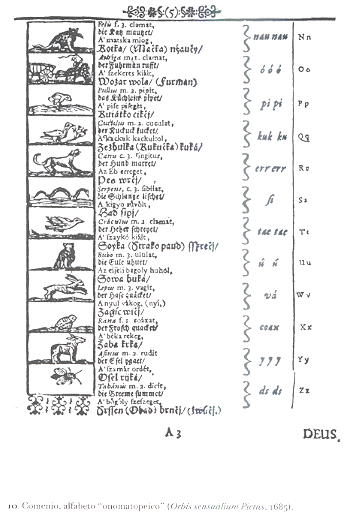 (5)
Felis f. 3. clamat,
die Katz mauzet/
A' matska miog,
Kotka/ (Mačka) nžaučy/
nau nau
N n
Auriga m. 1. clamat,
der Fuhrman rufft/
A' szekeres kiált,
Wozar wola/ (Furman)
ó ó ó
O o
Pullus m. 2. pipit,
das Küchlein pipet/
A' pise pisegh,
Kuřátko
pi pi
P p
Cuculus m. 2. cuculat,
der Kuckuck kucket/
A' kakuk kackukol,
kuk ku
Q q
Canis c. 3. ringitur,
der Hund marret/
Az Eb erreget,
Pes wrčj/
err err
R r
Serpens, c. 3. sibilat,
die Schlange zischet/
A' kigyo süvölt,
Had sipj/
si
S s
Graculus m. 2. clamat,
der Heher schreyet/
A' szaykó kiált,
Soyka
tac tac
T t
Bubo m. 3. ululat,
die Eule uhuet/
Az éijeli bagoly huhol,
Sowa huká/
ú ú
U u
Lepus m. 3. vagit,
der Hase quäcket/
A' nyul vákog, (nyi,)
Zagic
vá
W v
Rana f. 1. coaxat,
der Frosch quacket/
A' béka rekeg,
Žaba
coax
X x
Asinus m. 2. rudit
der Esel ygaet/
A' szamár ordét,
Osel
y y y
Y y
Tabanus m. 2. dicit,
die Breeme summet/
A' bögöly
ds ds
Z z
A 3
DEUS.
10. Comenio, alfabeto "onomatopeico" (Orbis sensualium Pictus, 1685).